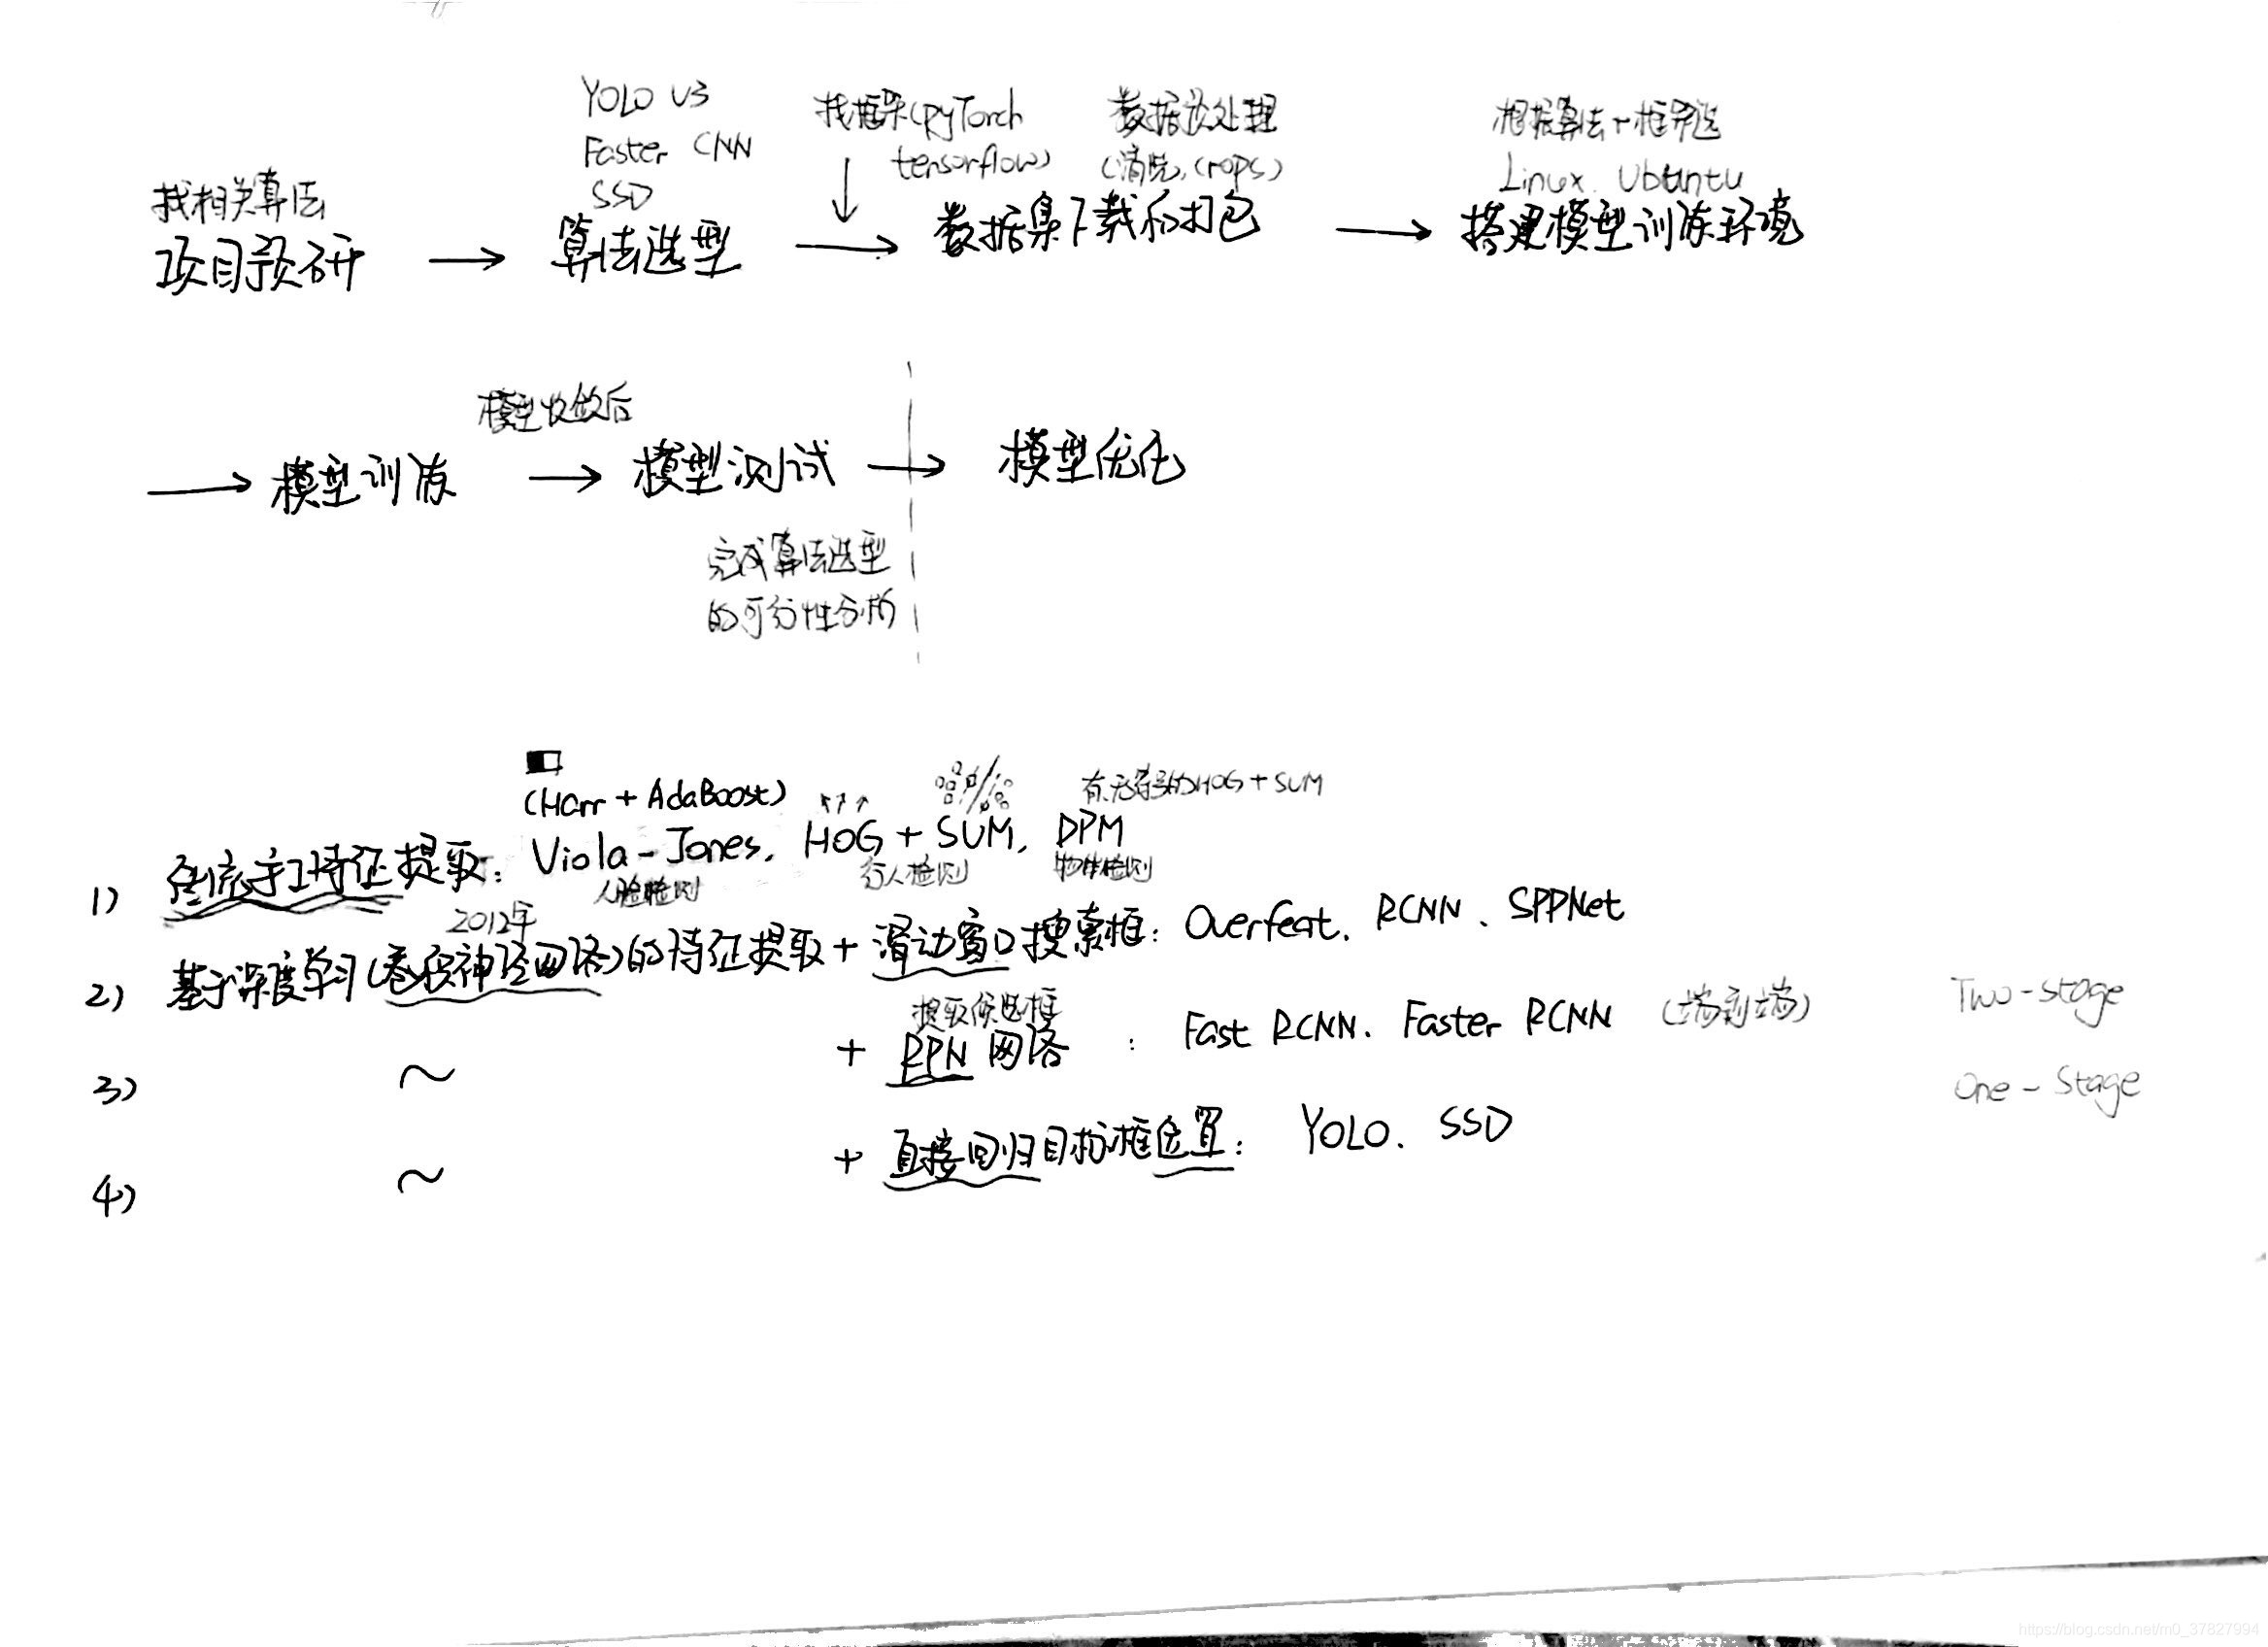 找相关算法
项目预研
→
YOLO V3
Faster CNN
SSD
算法选型
→
找框架(pyTorch
tensorflow)
↓
数据预处理
(清洗, crops)
数据集下载和打包
→
根据算法+框架选
Linux. Ubuntu
搭建模型训练环境
→ 模型训练
模型收敛后
→ 模型测试 → 模型优化
完成算法选型
的可行性分析
(Harr + AdaBoost)
有,无符号的HOG + SUM
1) 传统手工特征提取: Viola-Jones. HOG + SUM, DPM
人脸检测 行人检测 物体检测
2012年
2) 基于深度学习(卷积神经网络)的特征提取 + 滑动窗口搜索框: Overfeat. RCNN、SPPNet
提取候选框
3) ~ + RPN 网络 : Fast RCNN. Faster RCNN (端到端) Two-stage
4) ~ + 直接回归目标框位置: YOLO. SSD One-Stage
https://blog.csdn.net/m0_37827994